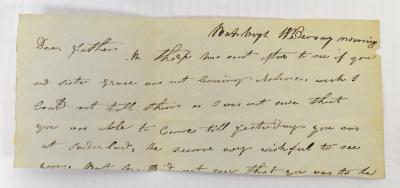 Wednesday morning
Dear Father
Mr Thorp has sent after to see if you
and sister Grace was not coming , wich I
could not tell them as I was not sure that
you was able to come till yesterday you was
at , he seems very wishful to see
you. But he did not say that you was to be